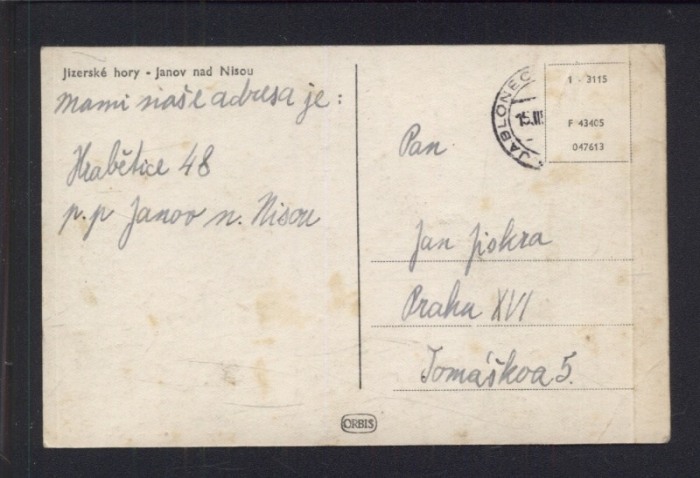 Jizerské hory - Janov nad Nisou
Mami naše adresa je:
Hrabětice 48
p.p Janov n. Nisou
JABLONEC
15.III
1 - 3115
F 43405
047613
Pan
Jan Jiskra
Praha XVI
Tomáškova 5.
ORBIS